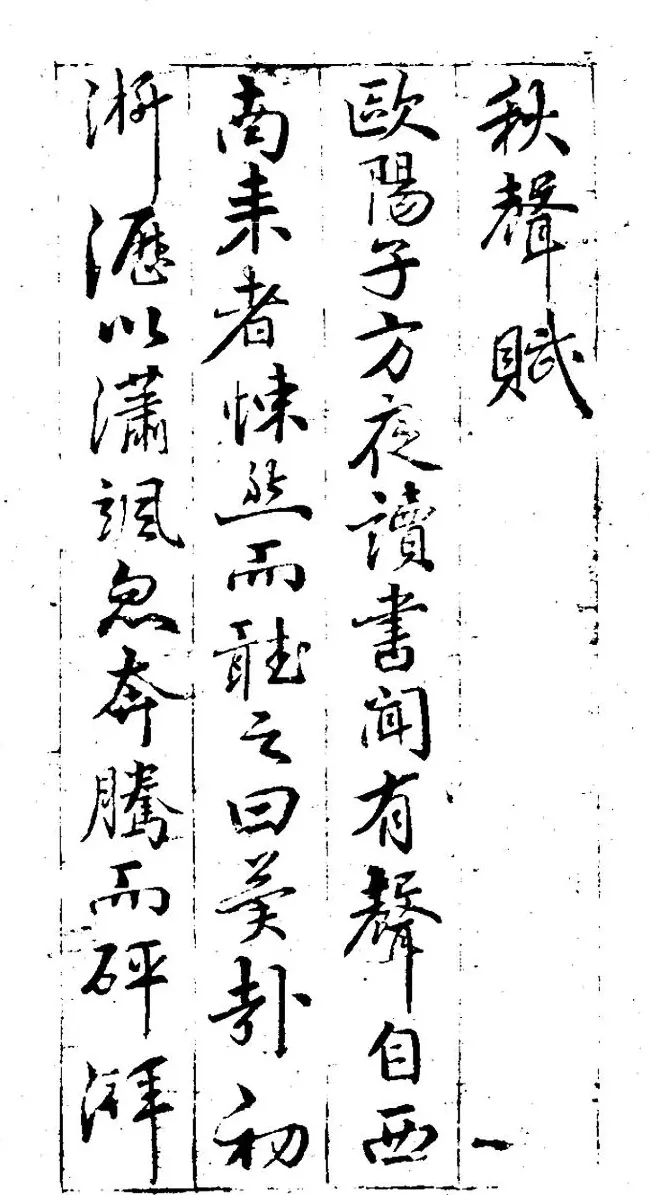 秋聲賦
一
歐陽子方夜讀書聞有聲自西
南来者悚然而聽之曰異哉初
淅瀝以瀟颯忽奔騰而砰湃